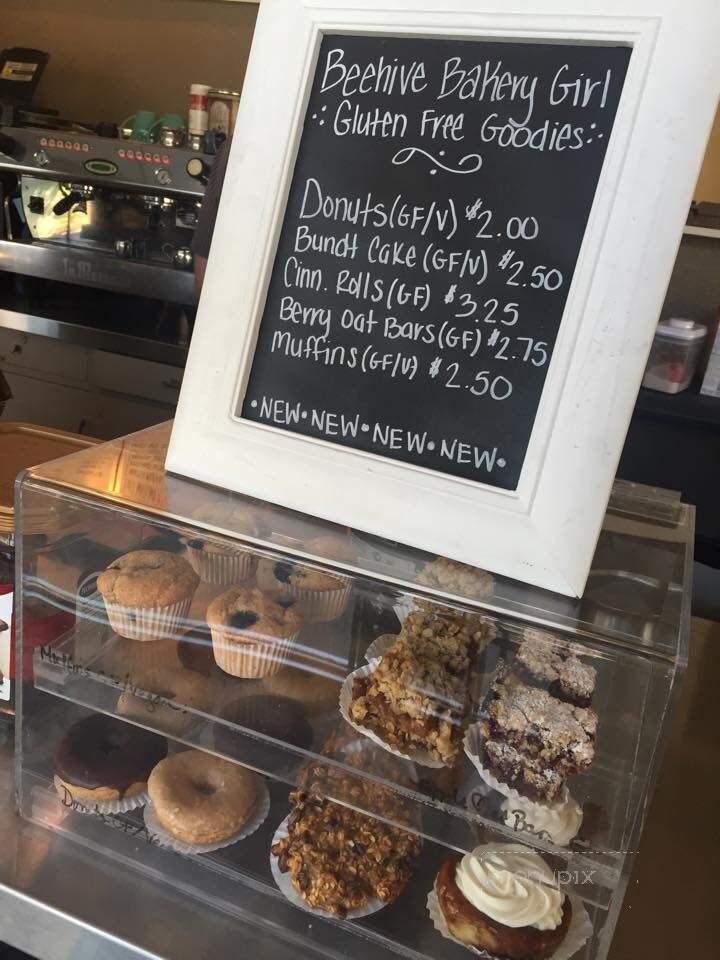 Beehive Bakery Girl
Gluten Free Goodies
Donuts (GF/V) $2.00
Bundt Cake (GF/V) $2.50
Cinn. Rolls (GF) $3.25
Berry Oat Bars (GF) $2.75
Muffins (GF/V) $2.50
•NEW•NEW•NEW•NEW•
menupix